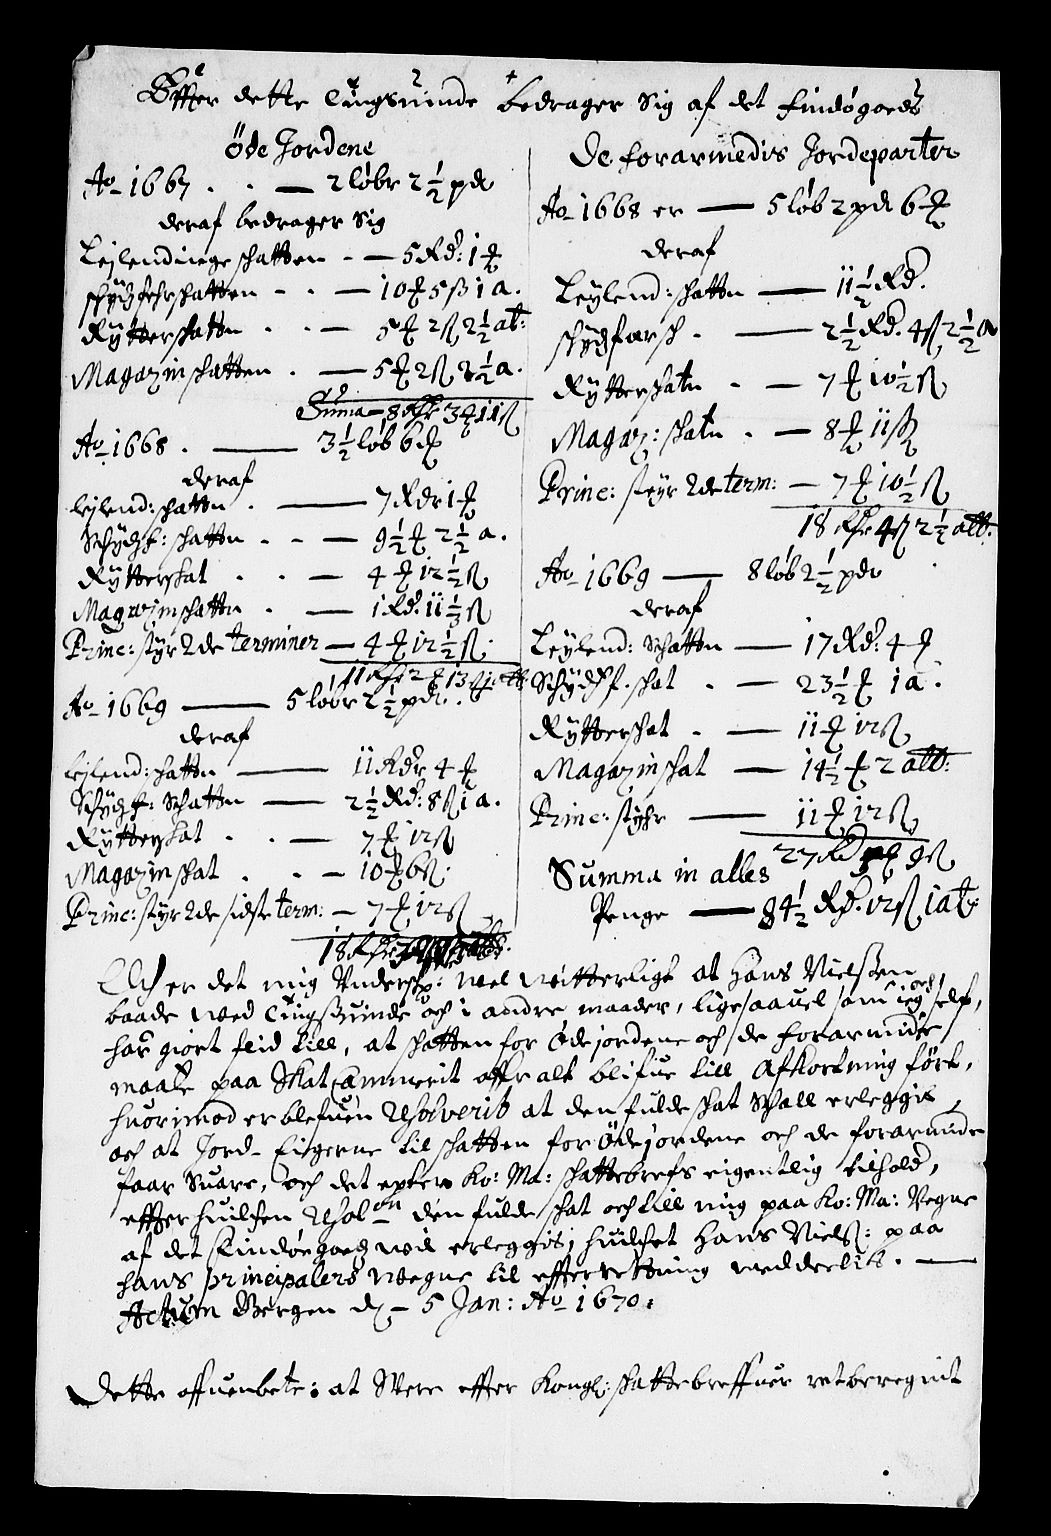 Effter dette Tingsuinde bedrager Sig af det Findøgoeds
öde Jordene
Ao 1667 . . — 2 löbr 2 1/2 pdr
deraf bedrager Sig
Leylendinge schatten . — 5 Rdr: 1 ₰
schydtzfehrschatten . . — 10 ₰ 5 ß 1 a.
Rytterschattn . . — 5 ₰ 2 ß 2 1/2 alb:
Magazinschatten . — 5 ₰ 2 ß 2 1/2 a.
Suma — 8 Rdr 3 ₰ 11 ß
Ao 1668 . — 3 1/2 löb 6 ₰
deraf
leylend: schattn . — 7 Rdr 1 ₰
Schydtzf: schattn . . — 9 1/2 ₰ 2 1/2 a.
Rytterschat . . — 4 ₰ 12 1/2 ß
Magazinschattn . — 1 Rdr. 11 1/3 ß
Princ: styr 2de terminer — 4 ₰ 12 1/2 ß.
11 Rdr 2 ₰ 13 ß 1 alb
Ao 1669 — 5 löbr 2 1/2 pdr.
deraf
leylend: schattn — 11 Rdr 4 ₰
Schydtzf: Schattn — 2 1/2 Rdr: 8 ß 1 a.
Rytterschat . . — 7 ₰ 12 ß
Magazinschat . . — 10 ₰ 6 ß.
Princ: styr 2de sidste term: — 7 ₰ 12 ß
18 Rdr
De forarmedis Jordeparter
Ao 1668 er — 5 löb 2 pdr 6 ₰
deraf
Leylend: schattn — 11 1/2 Rdr.
schydtzfærsch . — 2 1/2 Rdr. 4 ß 2 1/2 a
Rytterschatn . — 7 ₰ 10 1/2 ß
Magaz: schatn . — 8 ₰ 11 ß
Princ: styr 2de term: — 7 ₰ 10 1/2 ß
18 Rdr 4 ß 2 1/2 alb.
Ao 1669 — 8 löb 2 1/2 pdr
deraf
Leylend: Schattn — 17 Rdr: 4 ₰
Schydtzf. schat . — 23 1/2 ₰ 1 a.
Rytterschat . — 11 ₰ 12 ß
Magazinschat — 14 1/2 ₰ 2 alb:
Princ: styhr — 11 ₰ 12 ß
27 Rdr 9 ß
Summa in alles
Penge — 84 1/2 Rdr. 12 ß 1 alb:
Och er det mig Underschr: vel witterligt at Hans Nielssen
baade wed Tingsuinde och i andre maader, ligesaauel som ieg och self,
har giort flid till, at schatten for Ødejordene och de forarmede
maate paa Skatcammerit offr alt blifue till Afkortning fört,
huorimod er blefuen Resolverit at den fulde schat Schall erleggis,
och at Jord-Eigerne til schatten for Ødejordene och de forarmede
faar Suare, och det epter Ko: Ma: schattebrefs eigentlig tilhold,
effter huilchen Resol:on den fulde schat och till mig paa Ko: Ma: Vegne
af det Findöegoeds wed erleggis; huilchet Hans Niels: paa
hans principalers vegne til efterretning meddeelis. —
Actum Bergen d. 5 Jan: Ao 1670.
Dette ofuenbete: at Were effter Kongl: schattebreffuer ret beregnit